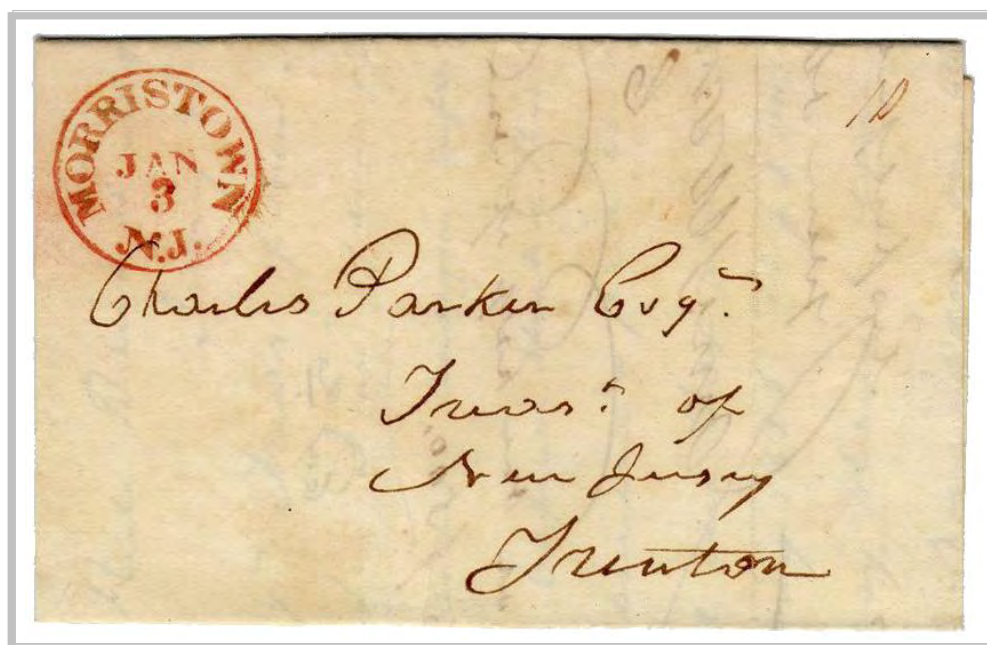 MORRISTOWN
JAN
3
N.J.
10
Charles Parker Esqr.
Treasr. of
New Jersey
Trenton